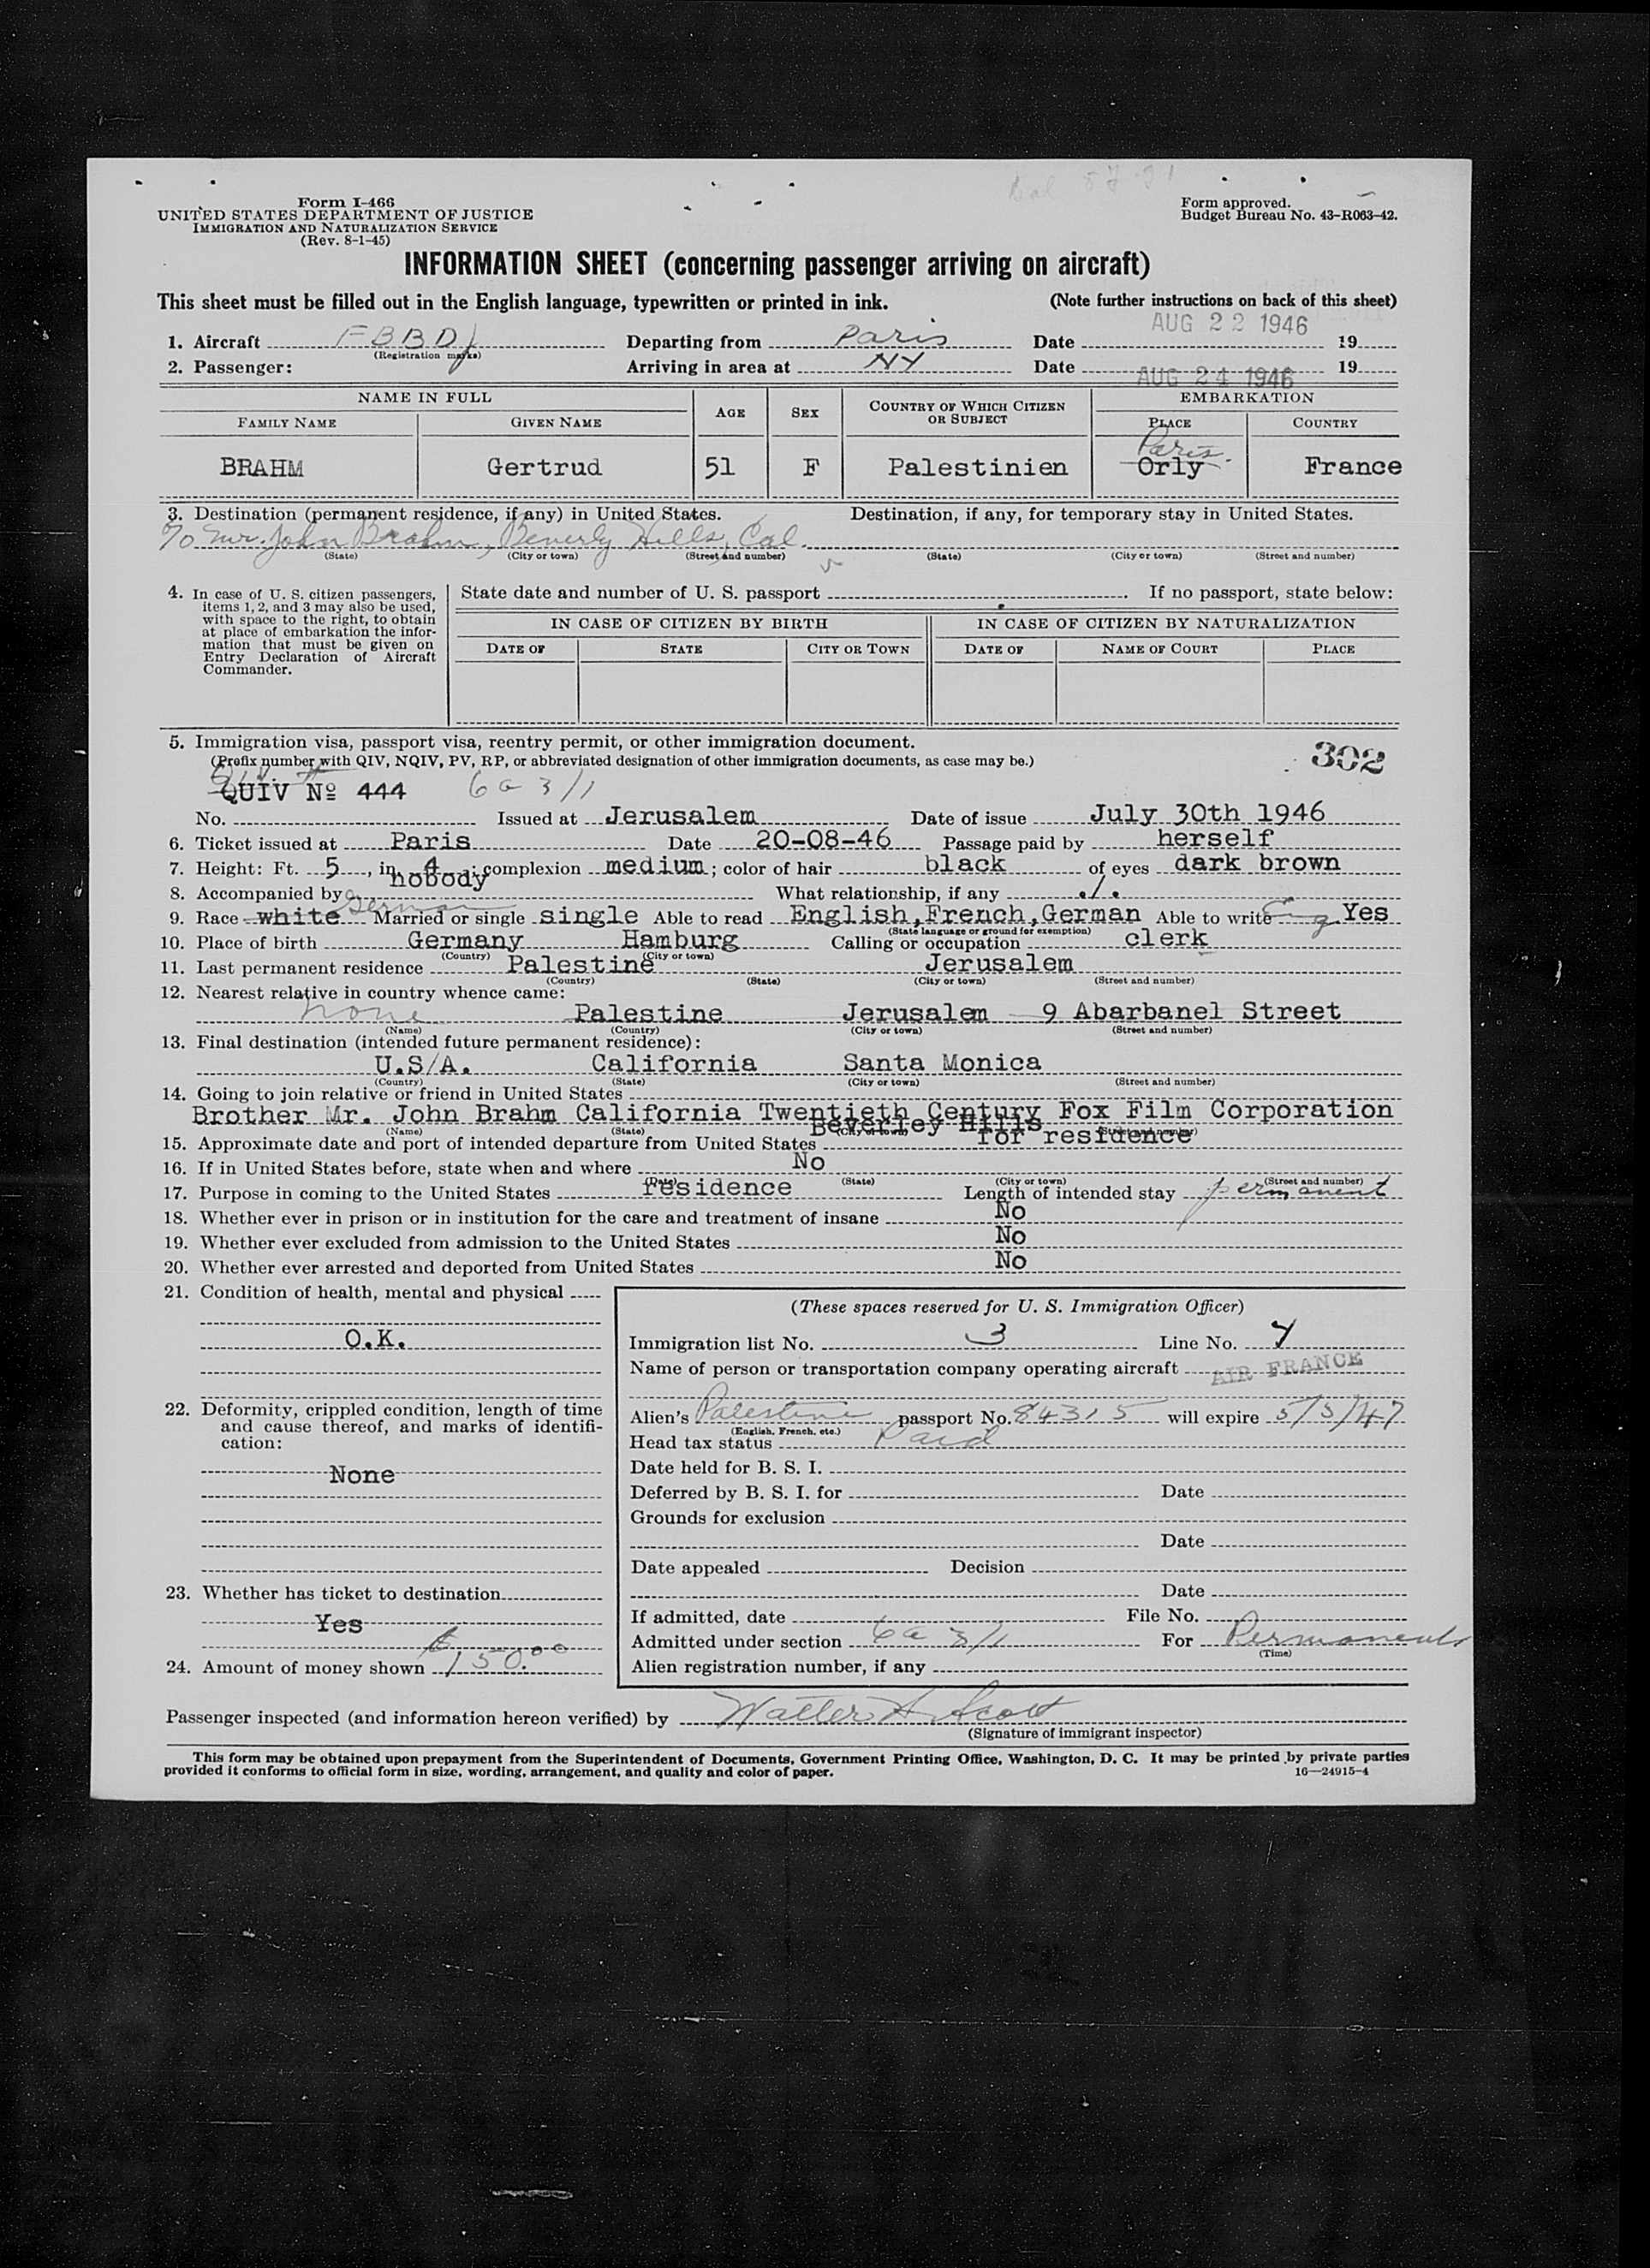 Form I-466
UNITED STATES DEPARTMENT OF JUSTICE
IMMIGRATION AND NATURALIZATION SERVICE
(Rev. 8-1-45)
Form approved.
Budget Bureau No. 43-R063-42.
INFORMATION SHEET (concerning passenger arriving on aircraft)
This sheet must be filled out in the English language, typewritten or printed in ink. (Note further instructions on back of this sheet)
1. Aircraft FBBD Departing from Paris Date AUG 22 1946 19
(Registration marks)
2. Passenger: Arriving in area at NY Date AUG 24 1946 19
NAME IN FULL AGE SEX COUNTRY OF WHICH CITIZEN OR SUBJECT EMBARKATION
FAMILY NAME GIVEN NAME PLACE COUNTRY
Paris
BRAHM Gertrud 51 F Palestinien Orly France
3. Destination (permanent residence, if any) in United States. Destination, if any, for temporary stay in United States.
c/o Mr. John Brahm, Beverly Hills, Cal.
(State) (City or town) (Street and number) (State) (City or town) (Street and number)
4. In case of U. S. citizen passengers, items 1, 2, and 3 may also be used, with space to the right, to obtain at place of embarkation the information that must be given on Entry Declaration of Aircraft Commander.
State date and number of U. S. passport If no passport, state below:
IN CASE OF CITIZEN BY BIRTH IN CASE OF CITIZEN BY NATURALIZATION
DATE OF STATE CITY OR TOWN DATE OF NAME OF COURT PLACE
5. Immigration visa, passport visa, reentry permit, or other immigration document.
(Prefix number with QIV, NQIV, PV, RP, or abbreviated designation of other immigration documents, as case may be.)
302
QUIV Nº 444 6a 3/1
No. Issued at Jerusalem Date of issue July 30th 1946
6. Ticket issued at Paris Date 20-08-46 Passage paid by herself
7. Height: Ft. 5, in. 4; complexion medium; color of hair black of eyes dark brown
8. Accompanied by nobody What relationship, if any ./.
German
9. Race white Married or single single Able to read English, French, German Able to write Eng Yes
(State language or ground for exemption)
10. Place of birth Germany Hamburg Calling or occupation clerk
(Country) (City or town)
11. Last permanent residence Palestine Jerusalem
(Country) (State) (City or town) (Street and number)
12. Nearest relative in country whence came:
none Palestine Jerusalem 9 Abarbanel Street
(Name) (Country) (City or town) (Street and number)
13. Final destination (intended future permanent residence):
U.S/A. California Santa Monica
(Country) (State) (City or town) (Street and number)
14. Going to join relative or friend in United States
Brother Mr. John Brahm California Twentieth Century Fox Film Corporation
Beverley Hills
(Name) (State) (City or town) (Street and number)
15. Approximate date and port of intended departure from United States for residence
16. If in United States before, state when and where No
(Date) (State) (City or town) (Street and number)
17. Purpose in coming to the United States residence Length of intended stay permanent
18. Whether ever in prison or in institution for the care and treatment of insane No
19. Whether ever excluded from admission to the United States No
20. Whether ever arrested and deported from United States No
21. Condition of health, mental and physical
O.K.
22. Deformity, crippled condition, length of time and cause thereof, and marks of identification:
None
23. Whether has ticket to destination
Yes
24. Amount of money shown $150.00
(These spaces reserved for U. S. Immigration Officer)
Immigration list No. 3 Line No. 7
Name of person or transportation company operating aircraft AIR FRANCE
Alien's Palestine passport No. 84315 will expire 5/5/47
(English, French, etc.)
Head tax status Paid
Date held for B. S. I.
Deferred by B. S. I. for Date
Grounds for exclusion
Date
Date appealed Decision
Date
If admitted, date File No.
Admitted under section 6a 3/1 For Permanent
(Time)
Alien registration number, if any
Passenger inspected (and information hereon verified) by Walter A Scott
(Signature of immigrant inspector)
This form may be obtained upon prepayment from the Superintendent of Documents, Government Printing Office, Washington, D. C. It may be printed by private parties
provided it conforms to official form in size, wording, arrangement, and quality and color of paper. 16—24915-4